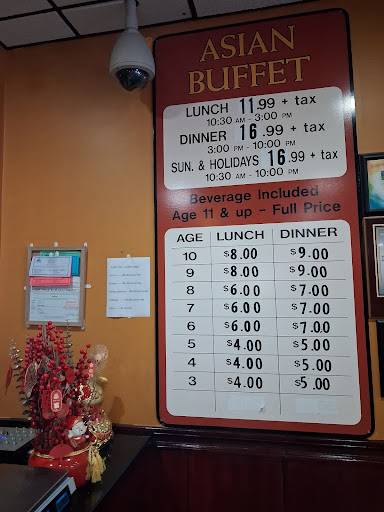 ASIAN
BUFFET
LUNCH 11.99 + tax
10:30 AM - 3:00 PM
DINNER 16.99 + tax
3:00 PM - 10:00 PM
SUN. & HOLIDAYS 16.99 + tax
10:30 AM - 10:00 PM
Beverage Included
Age 11 & up - Full Price
AGE LUNCH DINNER
10 $8.00 $9.00
9 $8.00 $9.00
8 $6.00 $7.00
7 $6.00 $7.00
6 $6.00 $7.00
5 $4.00 $5.00
4 $4.00 $5.00
3 $4.00 $5.00